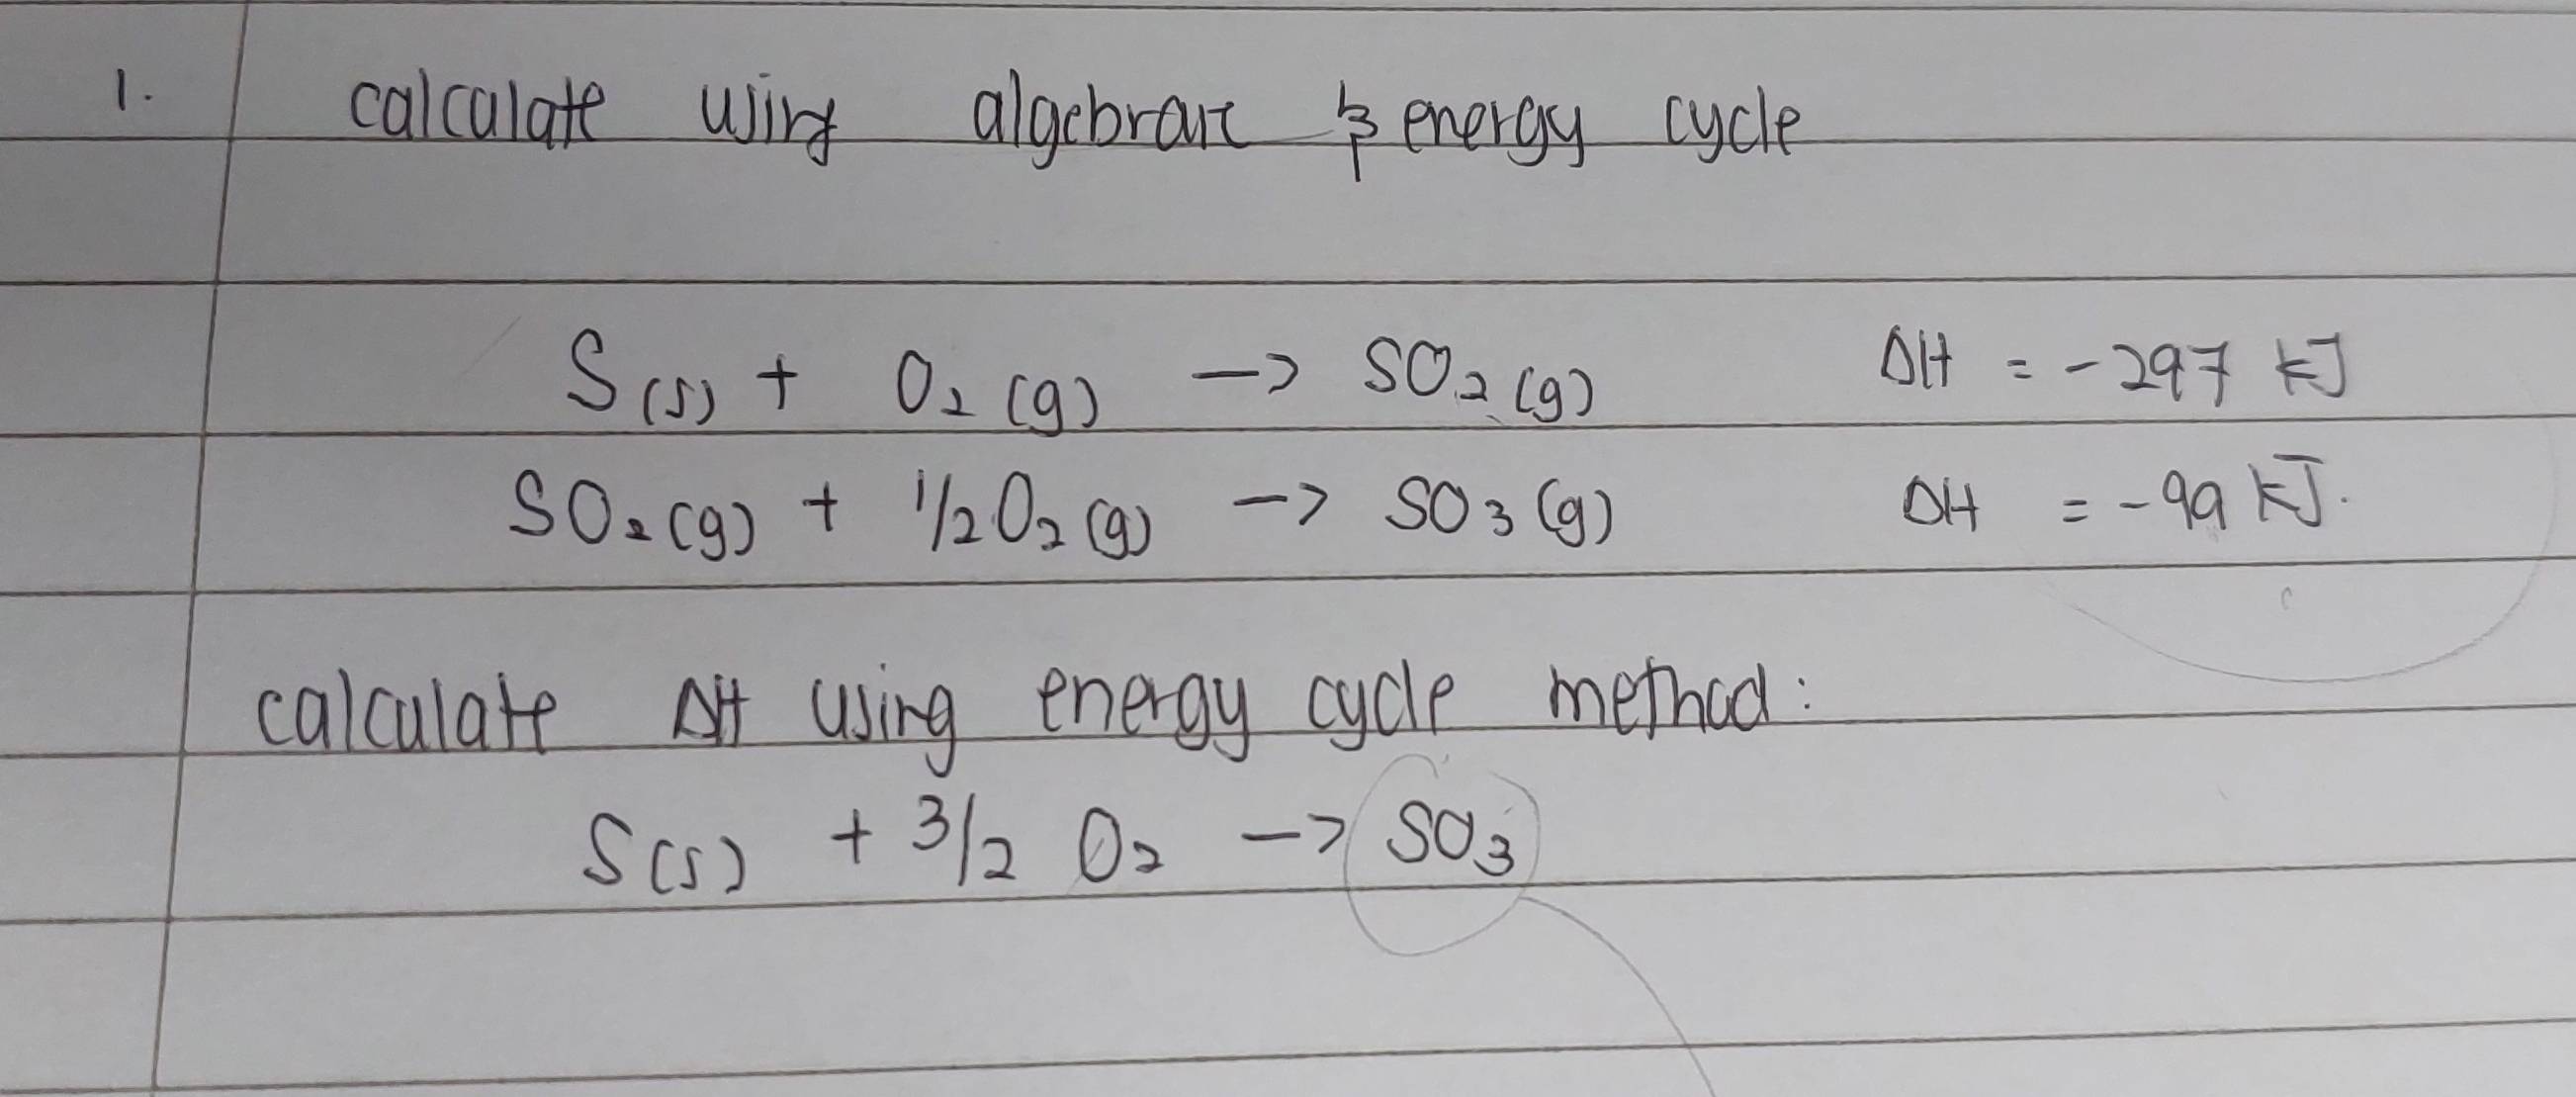 1. calculate using algebraic & energy cycle
S(s) + O₂(g) → SO₂(g) ΔH = -297 kJ
SO₂(g) + 1/2O₂(g) → SO₃(g) ΔH = -99 kJ.
calculate ΔH using energy cycle method:
S(s) + 3/2 O₂ → SO₃